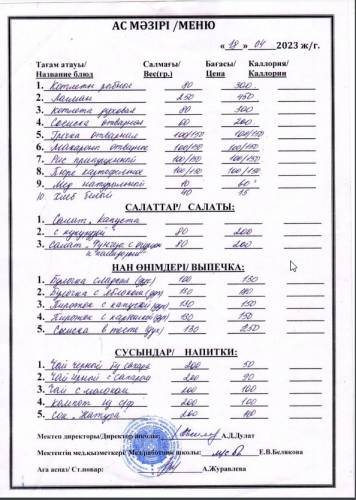 АС МӘЗІРІ /МЕНЮ
« 18 » 04 2023 ж/г.
Тағам атауы/ Салмағы/ Бағасы/ Каллория/
Название блюд Вес(гр.) Цена Каллории
1. Котлеты рыбные 80 300
2. Лагман 250 450
3. котлета духовая 80 300
4. Сосиска отварная 60 200
5. Гречка отварная 100/150 100/150
6. Макароны отварные 100/150 100/150
7. Рис припущенный 100/150 100/150
8. Пюре картофельное 100/150 100/150
9. Мед натуральный 10 60
10. Хлеб белый 40 15
САЛАТТАР/ САЛАТЫ:
1. Салат „Капуста
2. с кукурузой" 80 200
3. Салат с огурцом 80 200
и помидорами
НАН ӨНІМДЕРІ/ ВЫПЕЧКА:
1. Булочка 100 130
2. Булочка с яблоком 130 180
3. Пирожок с капустой 130 150
4. Пирожок с картошкой 130 150
5. Сосиска в тесте 130 250
СУСЫНДАР/ НАПИТКИ:
1. Чай черный б/ сахара 200 50
2. Чай черный с сахаром 200 90
3. Чай с молоком 200 100
4. компот 200 100
5. Сок 200
Мектеп директоры/Директор школы: А.Д.Дулат
Мектептің мед.қызметкері/ Мед.работник школы: Е.В.Белякова
Аға аспаз/ Ст.повар: А.Журавлева